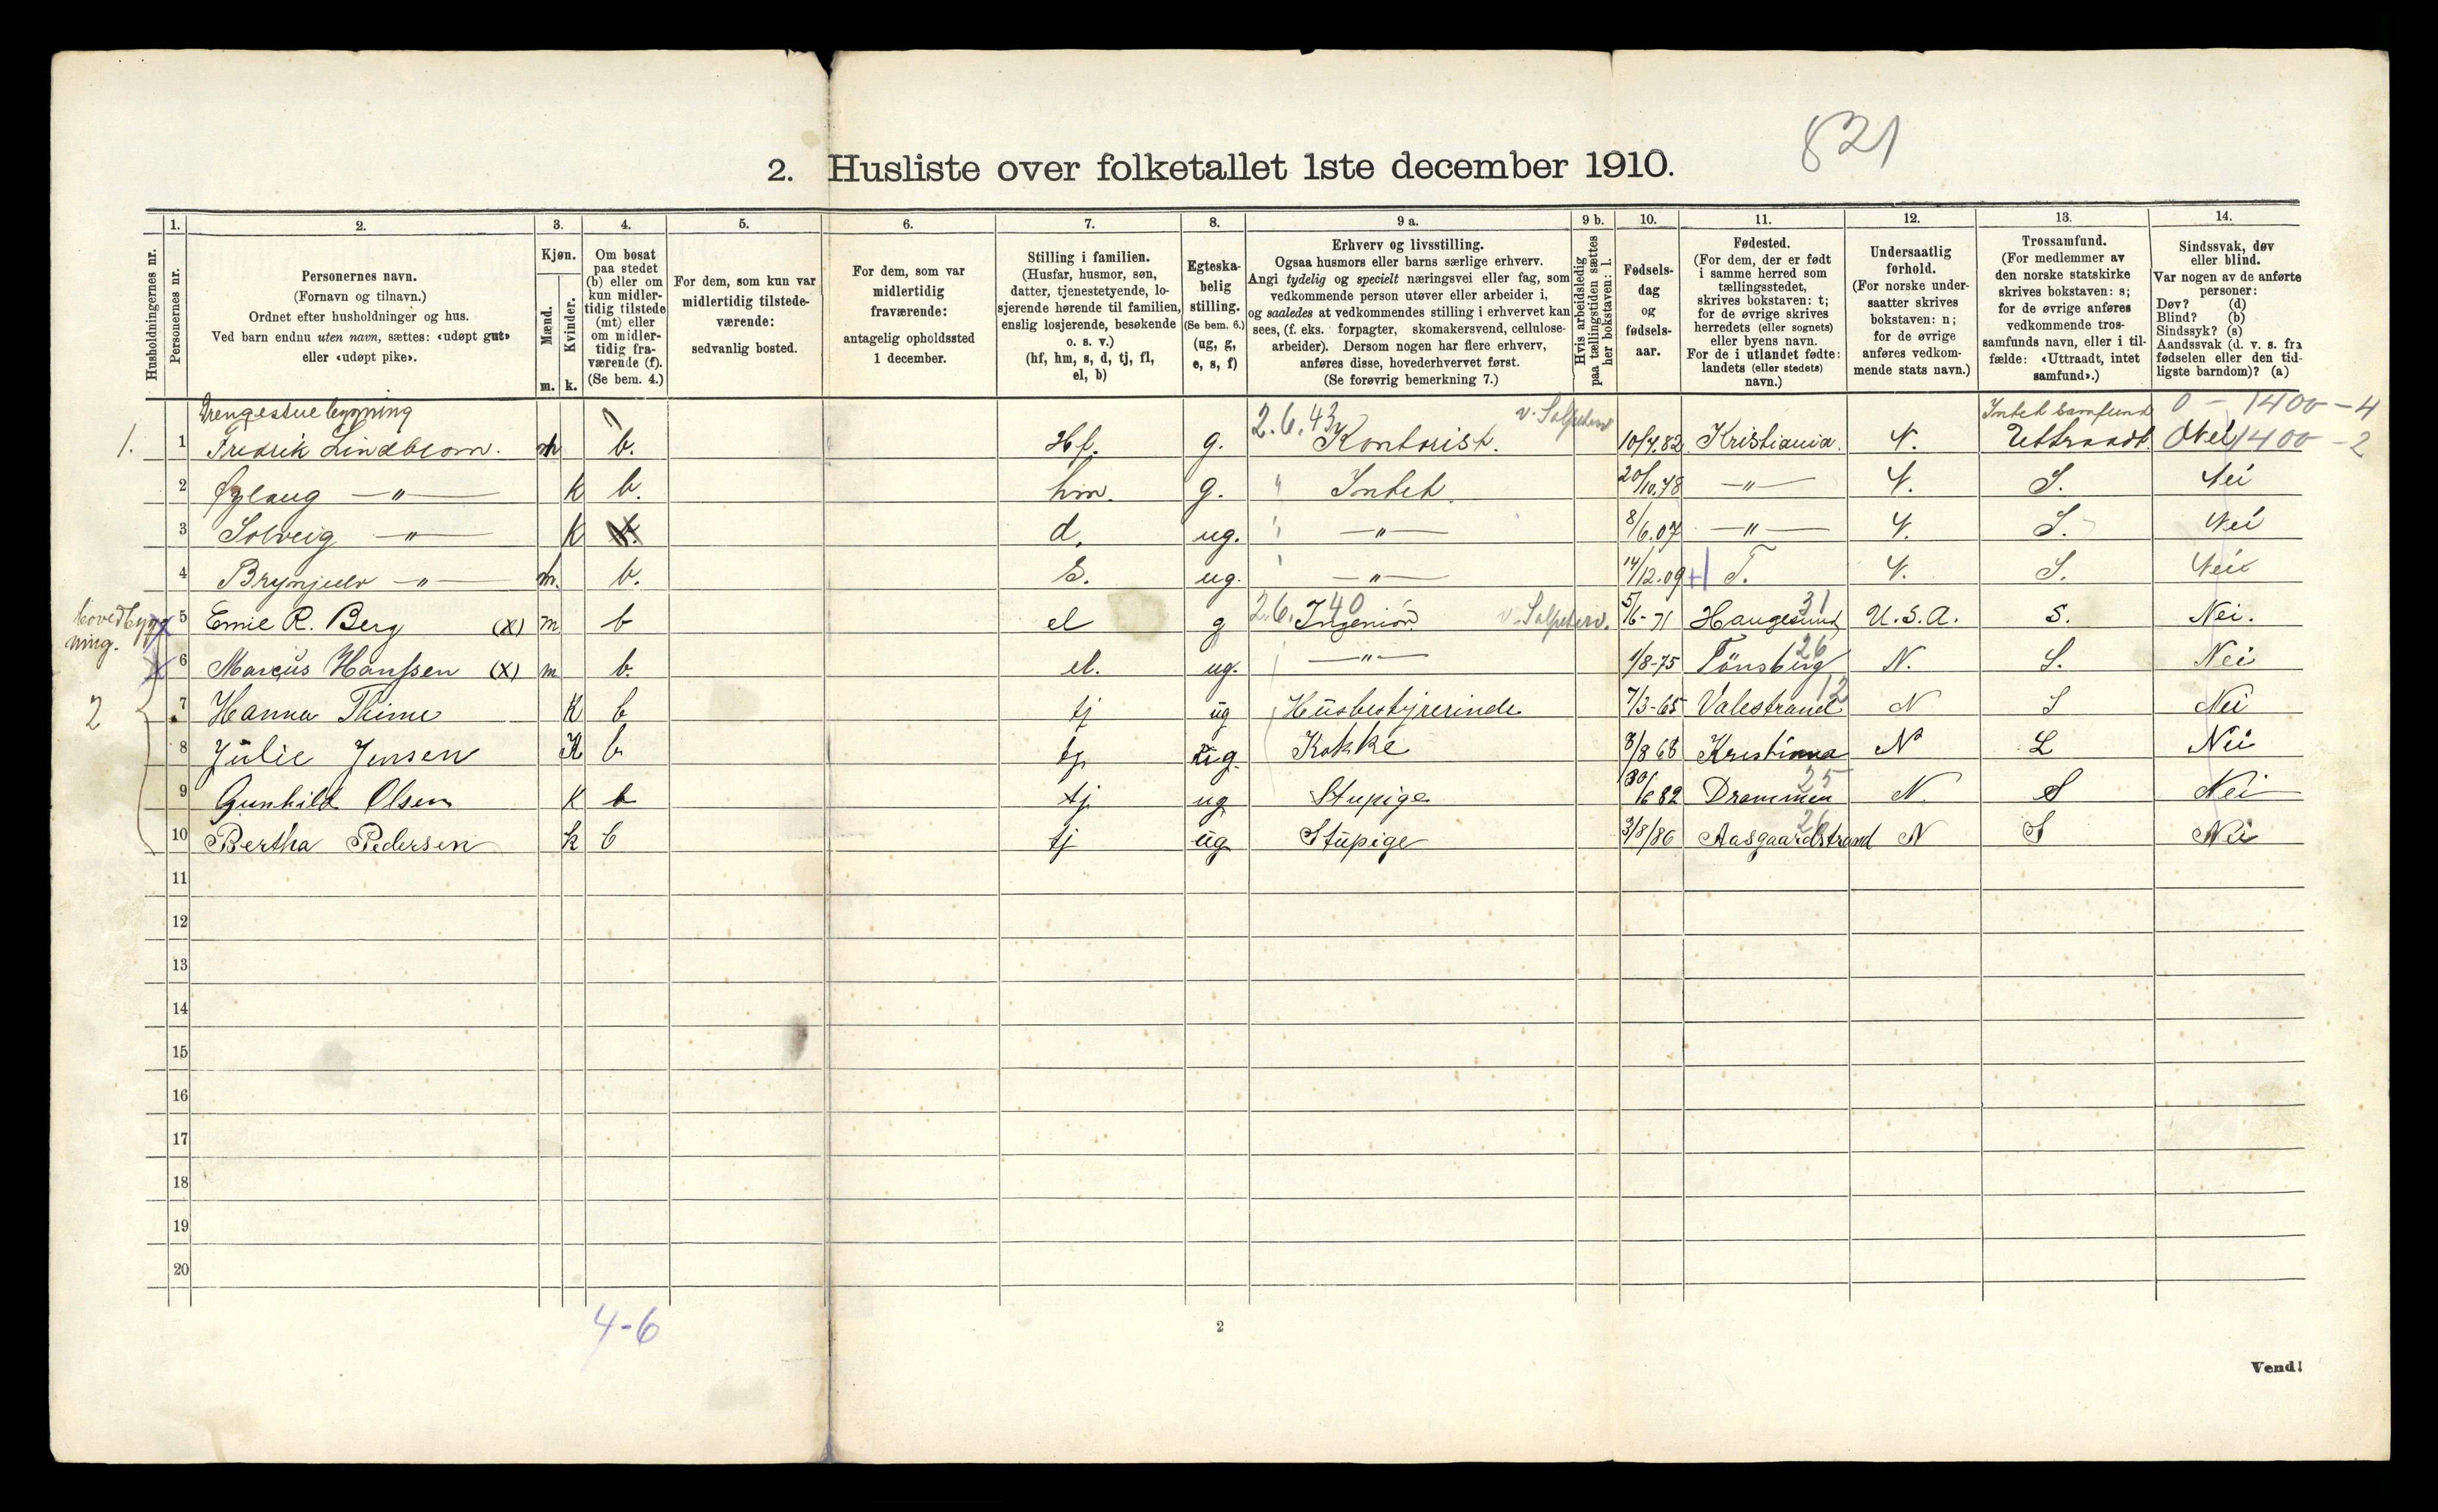 821
2. Husliste over folketallet 1ste december 1910.
Husholdningernes nr.
1. Personernes nr.
2. Personernes navn.
(Fornavn og tilnavn.)
Ordnet efter husholdninger og hus.
Ved barn endnu uten navn, sættes: «udøpt gut»
eller «udøpt pike».
3. Kjøn.
Mænd. m.
Kvinder. k.
4. Om bosat
paa stedet
(b) eller om
kun midler-
tidig tilstede
(mt) eller
om midler-
tidig fra-
værende (f).
(Se bem. 4.)
5. For dem, som kun var
midlertidig tilstede-
værende:
sedvanlig bosted.
6. For dem, som var
midlertidig
fraværende:
antagelig opholdssted
1 december.
7. Stilling i familien.
(Husfar, husmor, søn,
datter, tjenestetyende, lo-
sjerende hørende til familien,
enslig losjerende, besøkende
o. s. v.)
(hf, hm, s, d, tj, fl,
el, b)
8. Egteska-
belig
stilling.
(Se bem. 6.)
(ug, g,
e, s, f)
9 a. Erhverv og livsstilling.
Ogsaa husmors eller barns særlige erhverv.
Angi tydelig og specielt næringsvei eller fag, som
vedkommende person utøver eller arbeider i,
og saaledes at vedkommendes stilling i erhvervet kan
sees, (f. eks. forpagter, skomakersvend, cellulose-
arbeider). Dersom nogen har flere erhverv,
anføres disse, hovederhvervet først.
(Se forøvrig bemerkning 7.)
9 b. Hvis arbeidsledig
paa tællingstiden sættes
her bokstaven: l.
10. Fødsels-
dag
og
fødsels-
aar.
11. Fødested.
(For dem, der er født
i samme herred som
tællingsstedet,
skrives bokstaven: t;
for de øvrige skrives
herredets (eller sognets)
eller byens navn.
For de i utlandet fødte:
landets (eller stedets)
navn.)
12. Undersaatlig
forhold.
(For norske under-
saatter skrives
bokstaven: n;
for de øvrige
anføres vedkom-
mende stats navn.)
13. Trossamfund.
(For medlemmer av
den norske statskirke
skrives bokstaven: s;
for de øvrige anføres
vedkommende tros-
samfunds navn, eller i til-
fælde: «Uttraadt, intet
samfund».)
14. Sindssvak, døv
eller blind.
Var nogen av de anførte
personer:
Døv? (d)
Blind? (b)
Sindssyk? (s)
Aandssvak (d. v. s. fra
fødselen eller den tid-
ligste barndom)? (a)
Drengestue bygning 2.6.43 v. Salpeterv Intet samfund 0 - 1400 - 4
1. 1 Fredrik Lindblom. m b. Hf. g. Kontorist. 10/4.82 Kristiania. N. Uttraadt. Nei 1400 - 2
2 — " — K b. hm. g. " Intet. 20/10.78 — " — N. S. Nei
3 Solveig — " — K b. d. ug. " — " — 8/6.07 — " — N. S. Nei
4 Brynjulv — " — m. b. s. ug. " — " — 14/12.09 +1 T. N. S. Nei
hovedbyg-
ning.
x 5 Emil R. Berg (x) m b el g 2.6.40 Ingeniör v. Salpeterv. 5/6-71 Haugesund 31 U.S.A. S. Nei.
x 6 Marcus Hanssen (x) m b. el. ug. — " — 1/8-75 Tönsberg 26 N. S. Nei
2 7 Hanna Thime K b tj ug Husbestyrerinde 7/3-65 Valestrand 12 N S Nei
8 Julie Jensen K b tj ug. Kokke 8/8 68 Kristiania N S Nei
9 Gunhild Olsen K b tj ug Stupige 30/6 82 Drammen 25 N. S Nei
10 Bertha Pedersen k b tj ug Stupige 3/8/86 Aasgaardstrand 26 N S Nei
11
12
13
14
15
16
17
18
19
20
4-6
2
Vend!